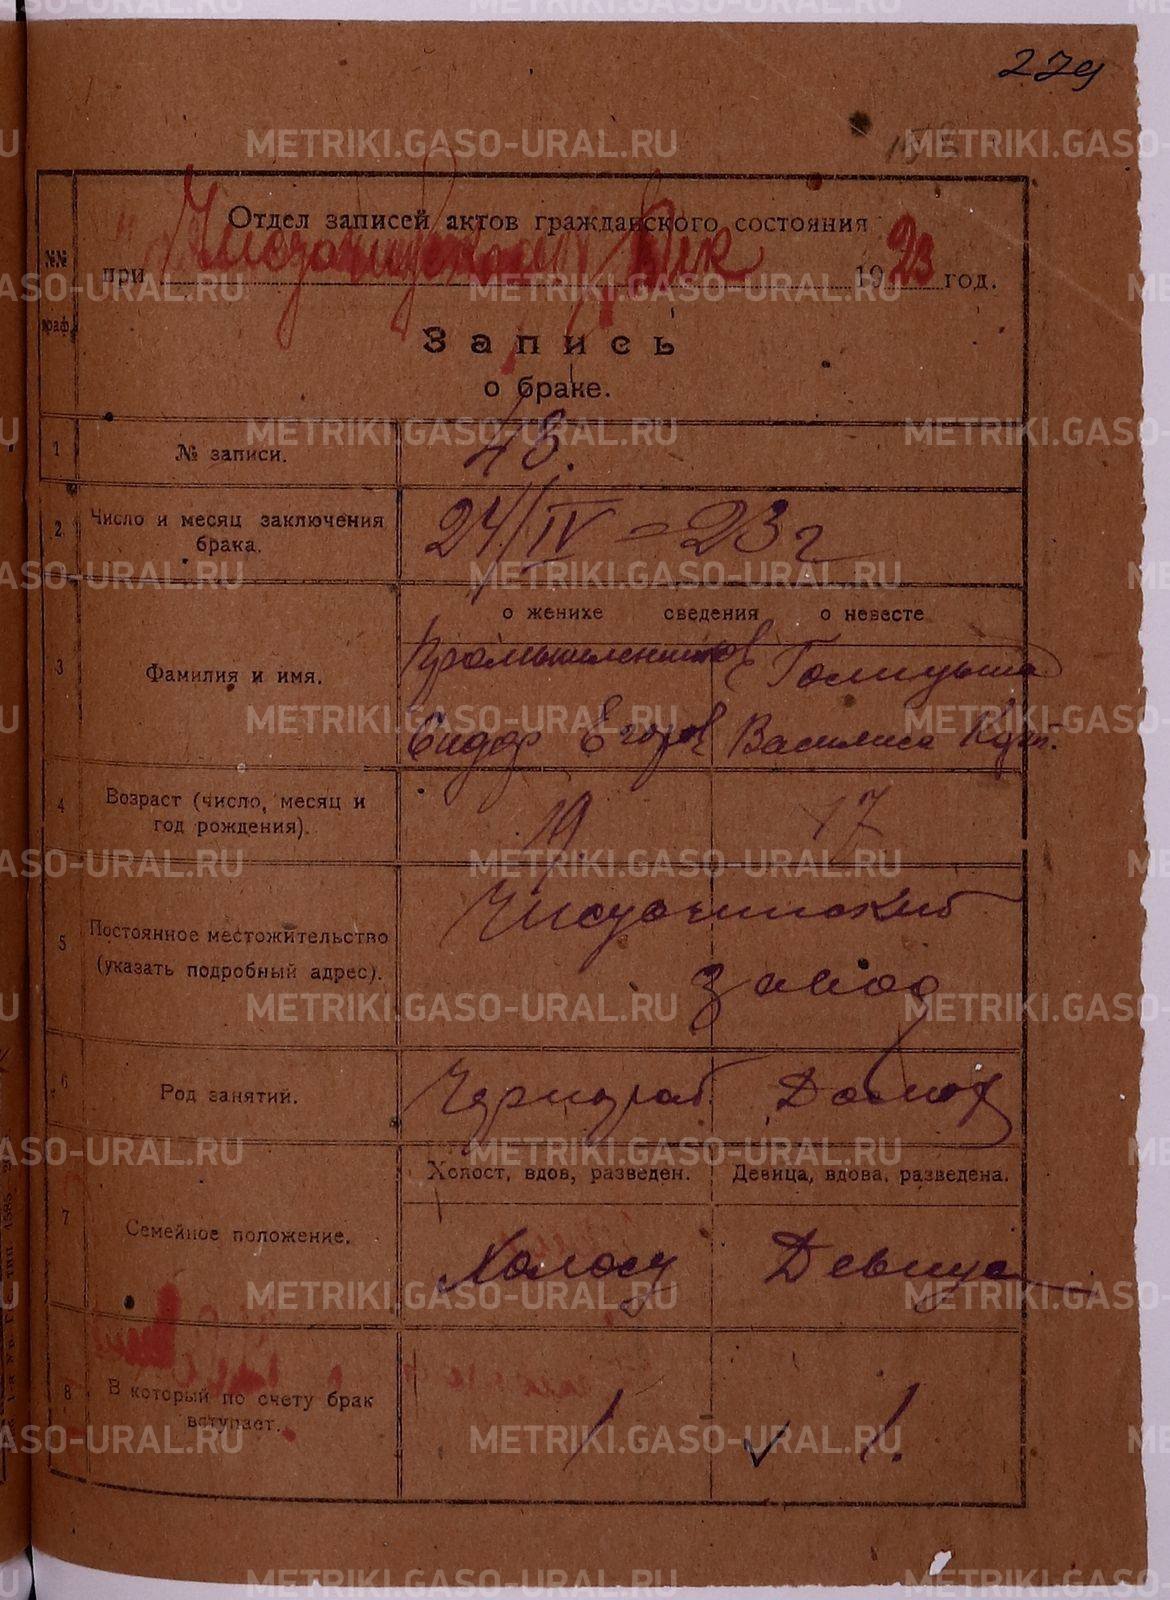 279
Отдел записей актов гражданского состояния
№№ граф.
при Нисгочинском Вик 1923 год.
Запись
о браке.
1 № записи. 48.
2 Число и месяц заключения брака. 24/IV = 23 г
о женихе сведения о невесте
3 Фамилия и имя.
Промышленников Голицына
Сидор Егоров Василиса Куз.
4 Возраст (число, месяц и год рождения). 19. 17
5 Постоянное местожительство (указать подробный адрес).
завод
6 Род занятий. Чернораб. Домох
Холост, вдов, разведен. Девица, вдова, разведена.
7 Семейное положение. Холост Девица
8 В который по счету брак вступает. 1 1.
METRIKI.GASO-URAL.RU